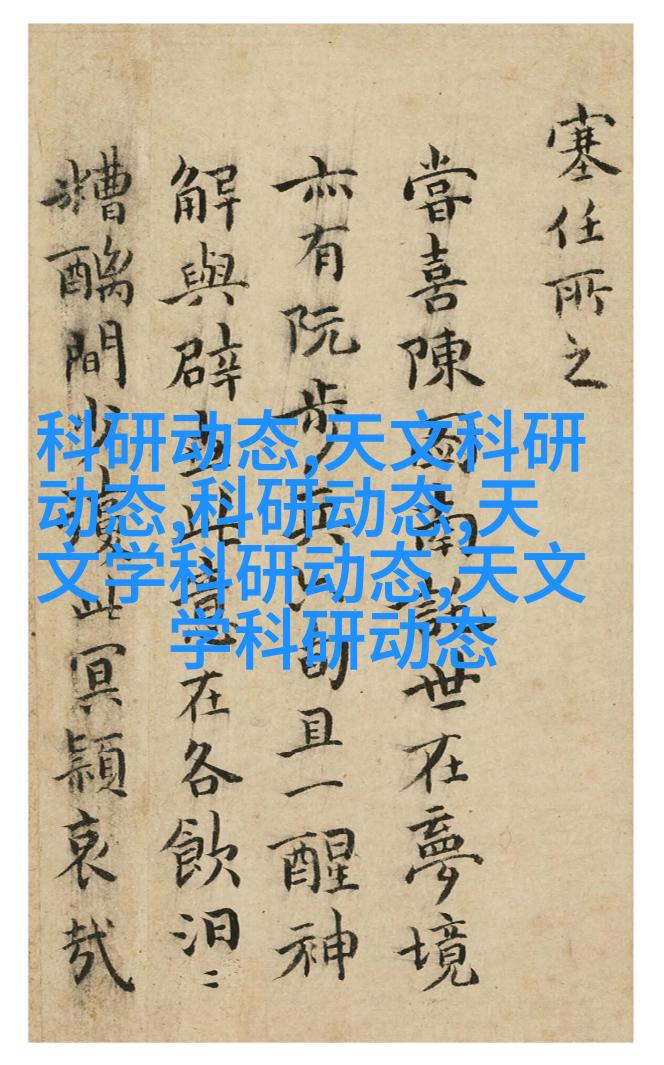 塞任所之
嘗喜陳 世在夢境
亦有阮步兵 胡且一醒神
解與辟 此意在各飲汨〻
糟醨間 此冥穎哀哉
科研动态,天文科研
动态,科研动态,天
文学科研动态,天文
学科研动态